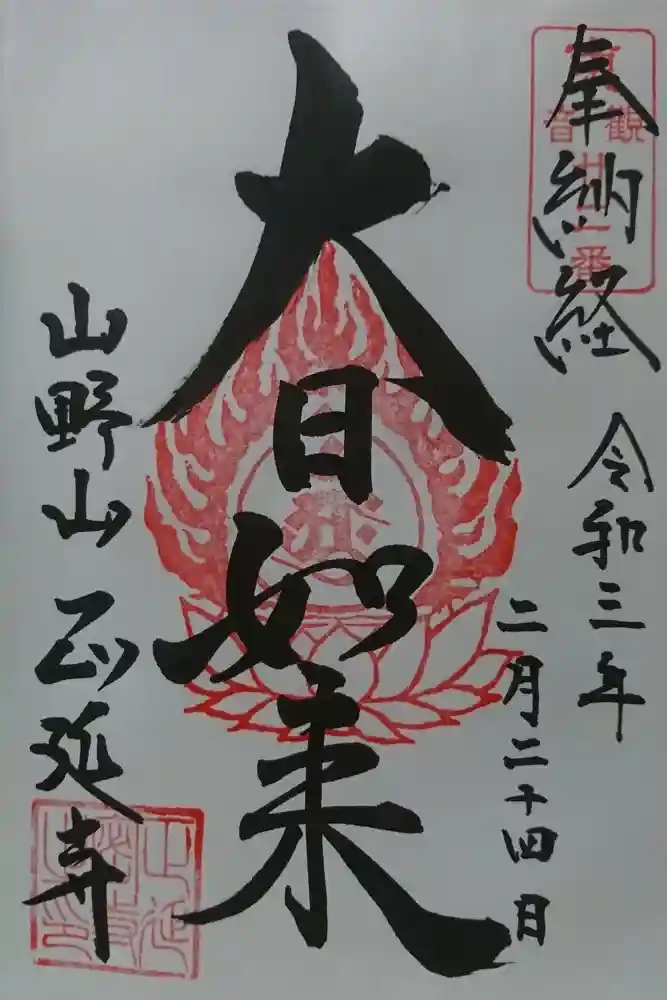 奉納経
令和三年
二月二十四日
大日如来
山野山 正延寺